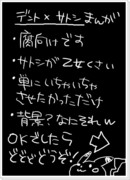 デント×サトシまんが
・腐向けです
・サトシが乙女くさい
・単にいちゃいちゃ
させたかっただけ
・背景?なにそれw
OKでしたら
どどどどうぞ!